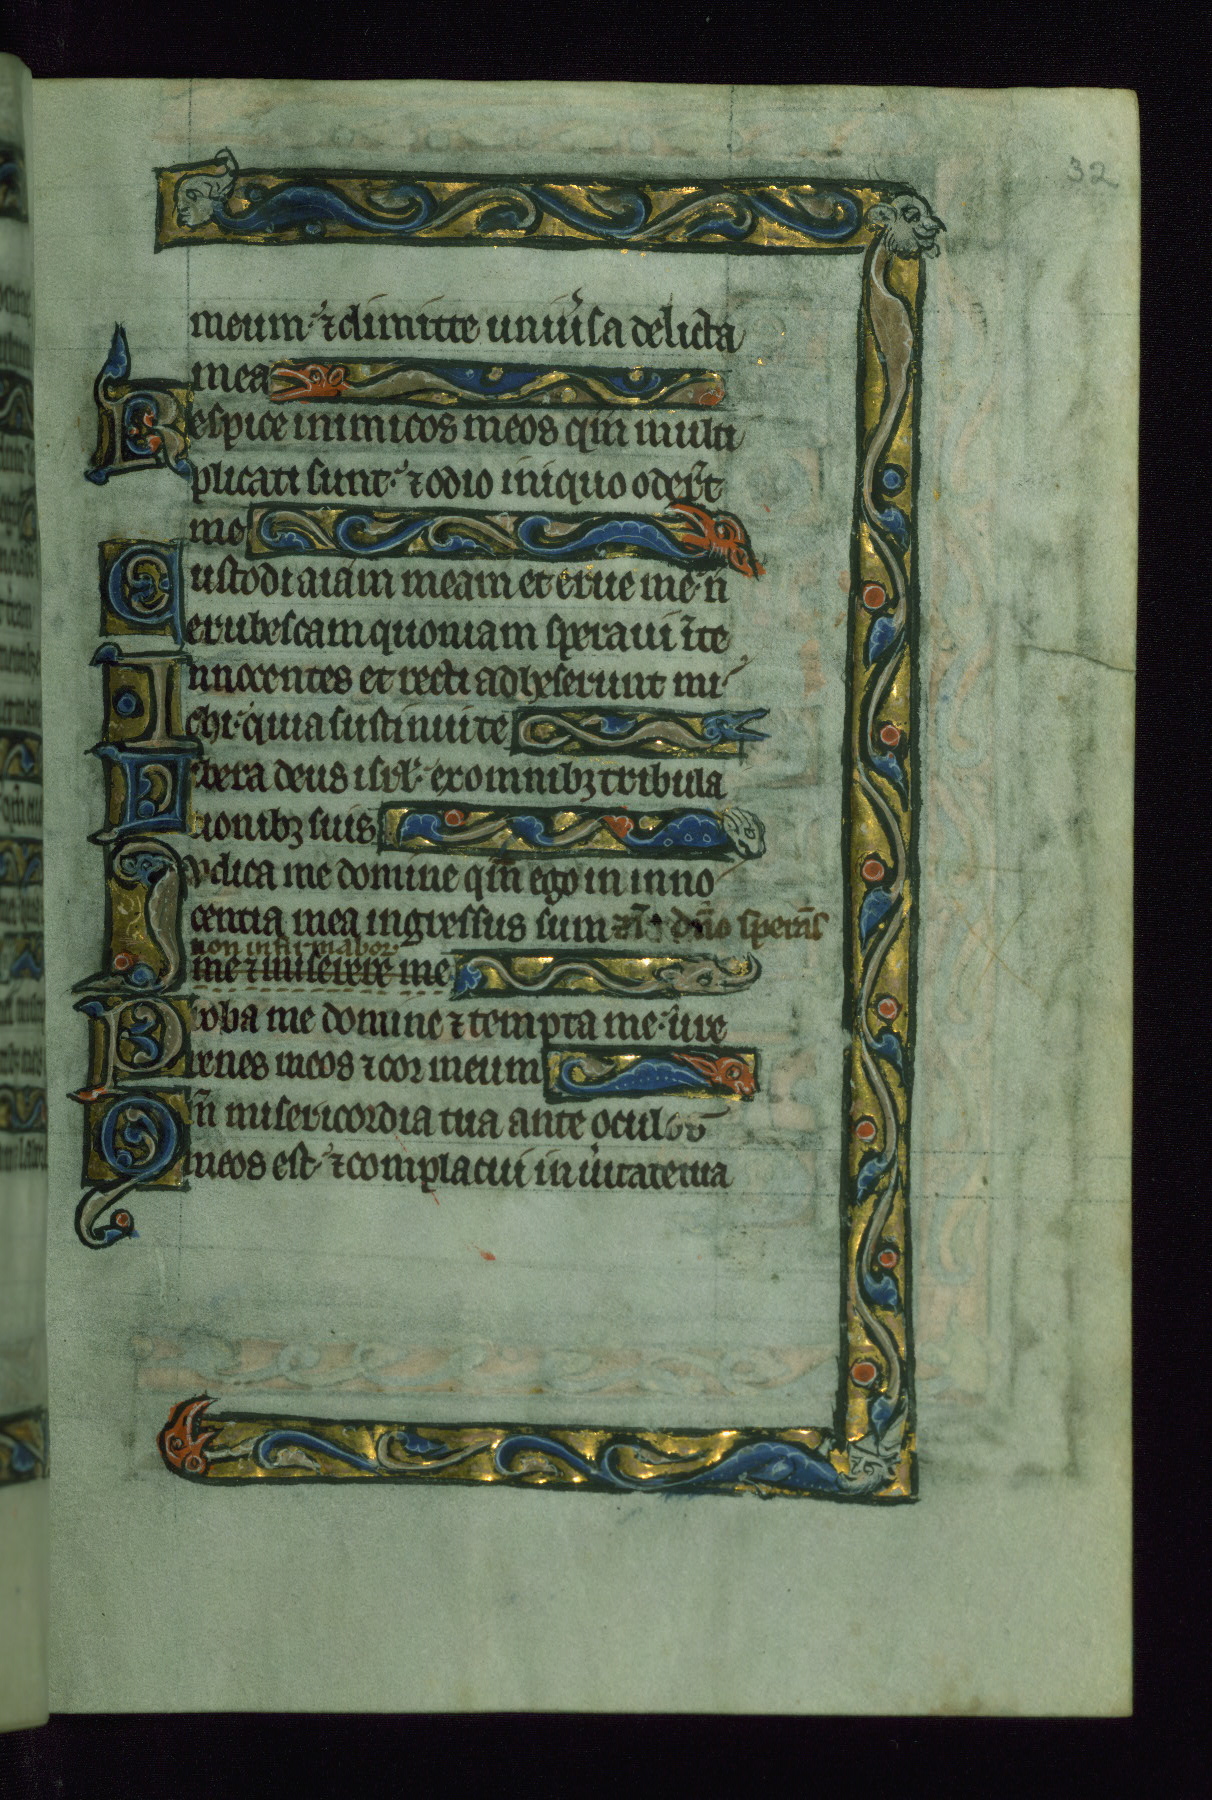 32
meum· ⁊ dimitte uniu͛sa delicta
mea
Respice inimicos meos qm̄ multi
plicati sunt· ⁊ odio iniquo oder̄t
me
Custodi aīam meam et erue me· n̄
erubescam quoniam speraui ī te
Innocentes et recti adheserunt mi
chi· quia sustinui te
Libera deus isrl̄· ex omnibꝫ tribula
tionibꝫ suis
Iudica me domine qm̄ ego in inno
centia mea ingressus sum ⁊ ī dn̄o sperās
non infirmabor
me ⁊ miserere me
Proba me domine ⁊ tempta me· ure
renes meos ⁊ cor meum
Qm̄ misericordia tua ante oculos
meos est· ⁊ complacui in u͛itate tua